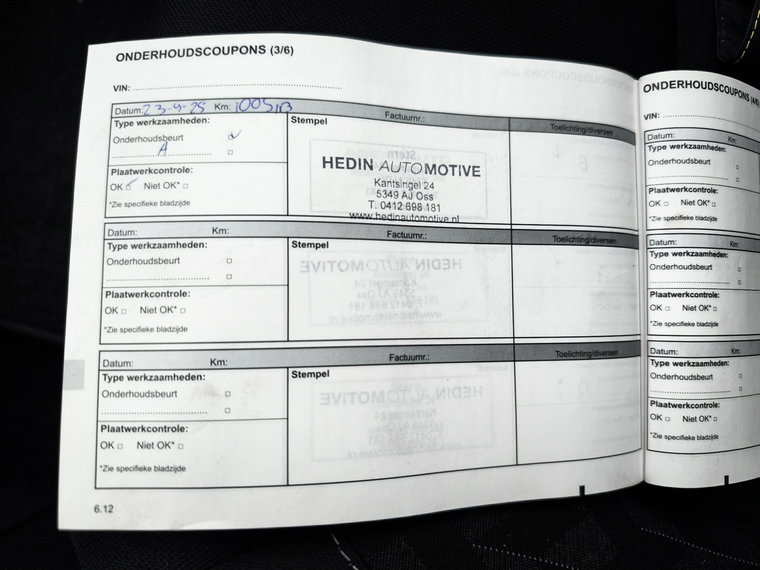 ONDERHOUDSCOUPONS (3/6)
VIN:
Datum: 23-9-25 Km: Factuurnr.: Toelichting/diversen
Type werkzaamheden:
Stempel
Onderhoudsbeurt
A
Plaatwerkcontrole:
OK Niet OK*
*Zie specifieke bladzijde
HEDIN AUTOMOTIVE
Kantsingel 24
5349 AJ Oss
T. 0412 698 181
www.hedinautomotive.nl
Datum: Km: Factuurnr.: Toelichting/diversen
Type werkzaamheden:
Stempel
Onderhoudsbeurt
Plaatwerkcontrole:
OK Niet OK*
*Zie specifieke bladzijde
Datum: Km: Factuurnr.: Toelichting/diversen
Type werkzaamheden:
Stempel
Onderhoudsbeurt
Plaatwerkcontrole:
OK Niet OK*
*Zie specifieke bladzijde
6.12
ONDERHOUDSCOUPONS (4/6)
VIN:
Datum: Km:
Type werkzaamheden:
Onderhoudsbeurt
Plaatwerkcontrole:
OK Niet OK*
*Zie specifieke bladzijde
Datum: Km:
Type werkzaamheden:
Onderhoudsbeurt
Plaatwerkcontrole:
OK Niet OK*
*Zie specifieke bladzijde
Datum: Km:
Type werkzaamheden:
Onderhoudsbeurt
Plaatwerkcontrole:
OK Niet OK*
*Zie specifieke bladzijde